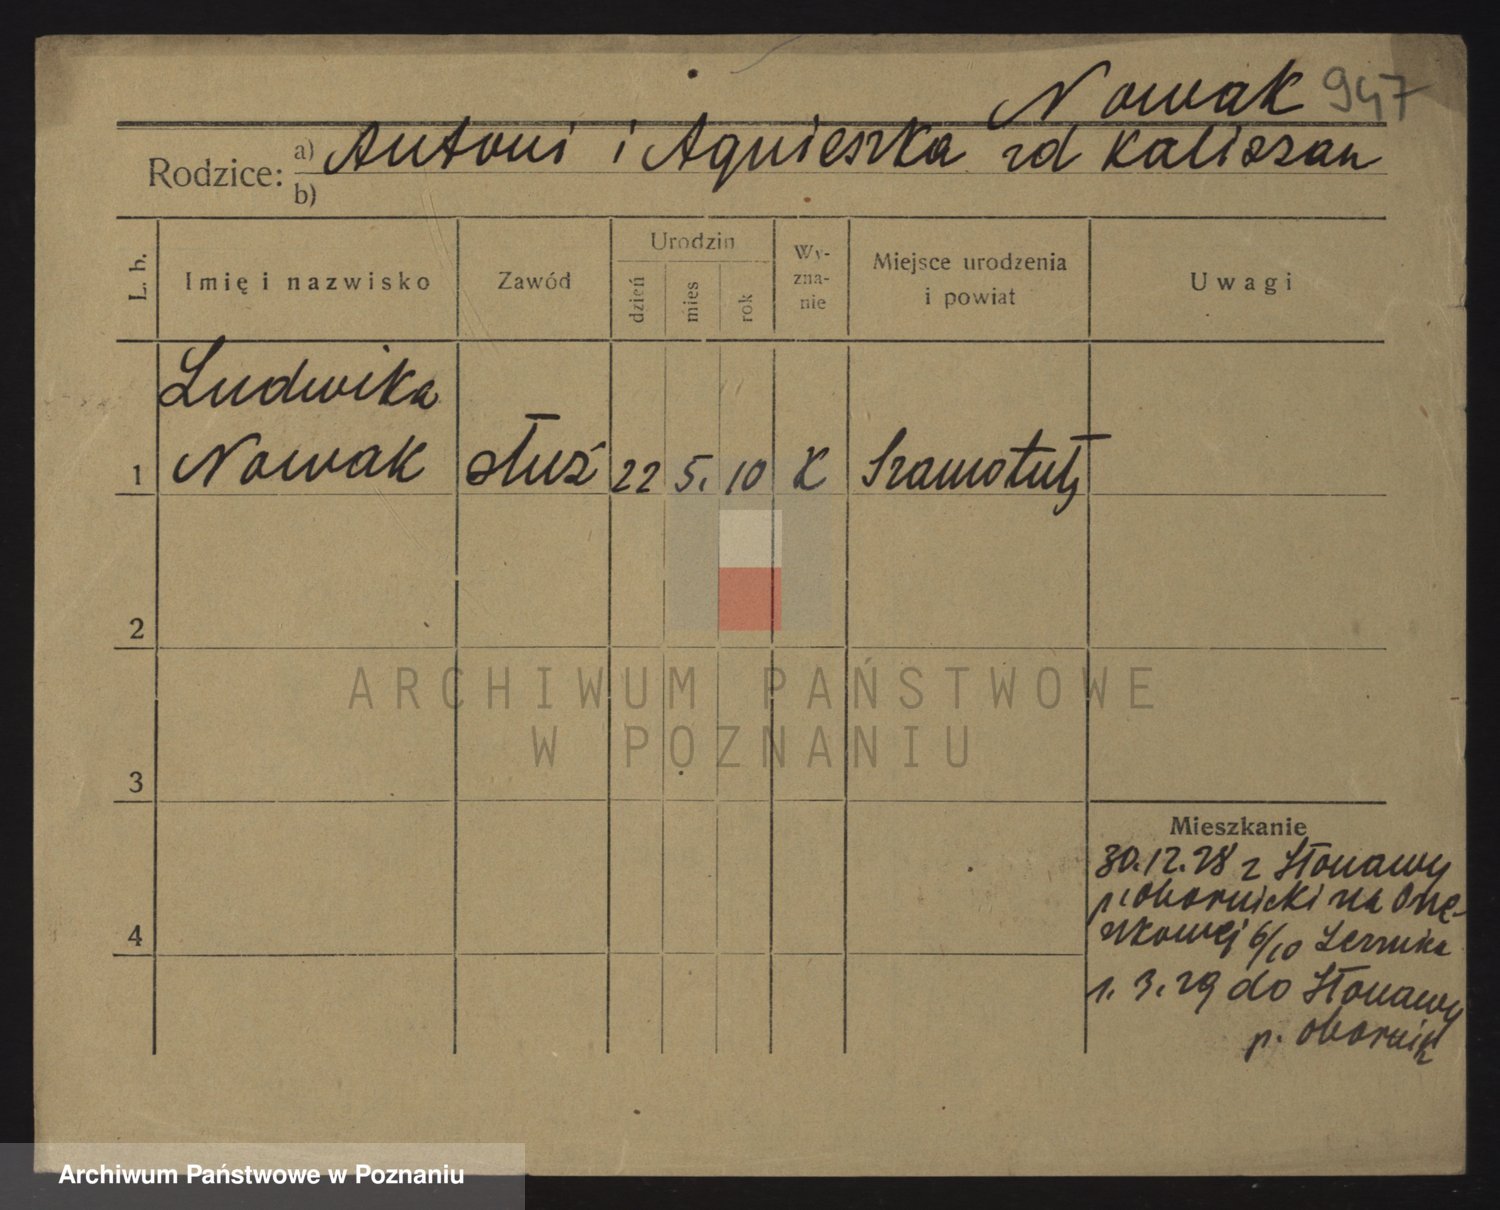 Nowak 947
Rodzice: a) Antoni i Agnieszka zd Kaliszan
b)
L. b.
Imię i nazwisko
Zawód
Urodzin
dzień
mies
rok
Wy-
zna-
nie
Miejsce urodzenia
i powiat
Uwagi
Ludwika
1 Nowak służ 22 5. 10 K Szamotuły
2
3
4
Mieszkanie
30.12.28 z Stonawy
p. obornicki na
6/10
1. 3. 29 do Stonawy
p. obornick
ARCHIWUM PAŃSTWOWE
W POZNANIU
Archiwum Państwowe w Poznaniu